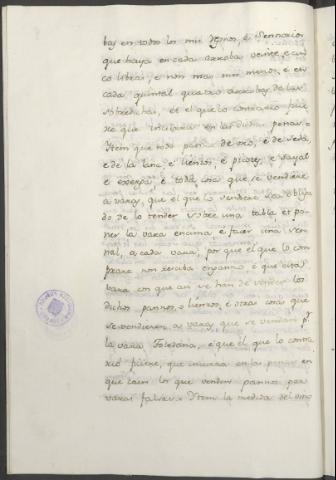 bas en todos los mis Regnos, e Sennorios
que haya en cada arroba veinte, e cin
co libras, e non mas nin menos, e en
cada quintal quatro arrobas de las
sobredichas, et el que lo contrario ficie
re que incurra en las dichas penas.=
Item que todo panno de oro, e de seda,
e de la lana, e lienzo, e picotes, e sayal
e xerga, e toda cosa que se vendiere
a varas, que el que lo vendiere sea obliga
do de lo tender sobre una tabla, et po
ner la vara encima e facer una sen
nal, a cada vara, por que el que lo com
prare non reciba enganno e que esta
vara con que asi se han de vender los
dichos pannos, e lienzos, e otras cosas que
se vendieren a varas, que se vendan pr.
la vara Toledana, e que el que lo contra
rio ficiere, que incurra en las penas en
que caen los que venden pannos por
varas falsas.= Item la medida del vino